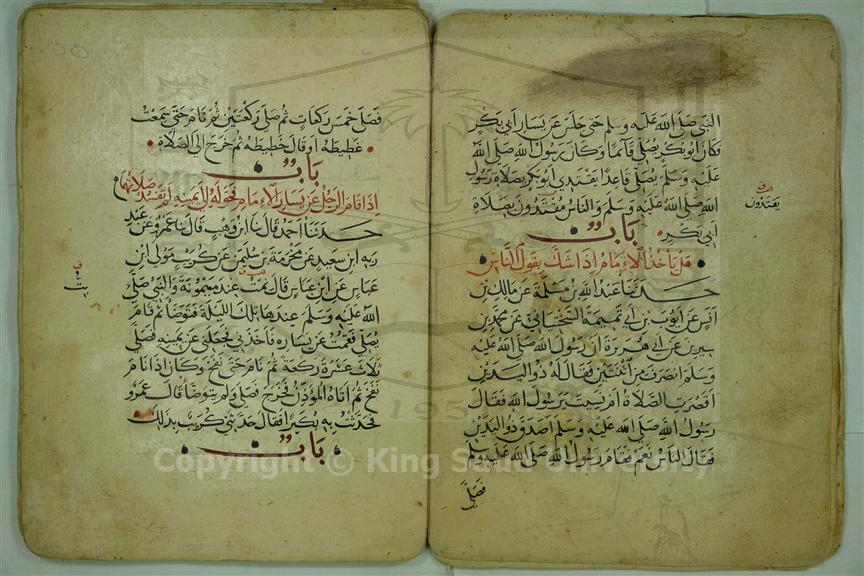 النبي صلى الله عليه وسلم حتى جلس عن يسار أبي بكر
فكان أبو بكر يصلي قائما وكان رسول الله صلى الله
عليه وسلم يصلي قاعدا يقتدي أبو بكر بصلاة رسول
الله صلى الله عليه وسلم والناس مقتدون بصلاة
أبي بكر
يقتدون
باب
هل يأخذ الإمام إذا شك بقول الناس
حدثنا عبد الله بن مسلمة عن مالك بن
أنس عن أيوب بن أبي تميمة السختياني عن محمد بن
سيرين عن أبي هريرة أن رسول الله صلى الله عليه
وسلم انصرف من اثنتين فقال له ذو اليدين
أقصرت الصلاة أم نسيت يا رسول الله فقال
رسول الله صلى الله عليه وسلم أصدق ذو اليدين
فقال الناس نعم فقام رسول الله صلى الله عليه وسلم
فصلى
فصلى خمس ركعات ثم صلى ركعتين ثم نام حتى سمعت
غطيطه أو قال خطيطه ثم خرج إلى الصلاة
باب
إذا قام الرجل عن يسار الإمام فحوله إلى يمينه لم تفسد صلاتهما
حدثنا أحمد قال نا ابن وهب قال نا عمرو عن عبد
ربه ابن سعيد عن مخرمة بن سليمن عن كريب مولى ابن
عباس عن ابن عباس قال نمت عند ميمونة والنبي صلى
الله عليه وسلم عندها تلك الليلة فتوضأ ثم قام
يصلي فقمت عن يساره فأخذني فجعلني عن يمينه فصلى
ثلاث عشرة ركعة ثم نام حتى نفخ وكان إذا نام
نفخ ثم أتاه المؤذن فخرج فصلى ولم يتوضأ قال عمرو
فحدثت به بكيرا فقال حدثني كريب بذلك
باب
Copyright © King Saud University
195